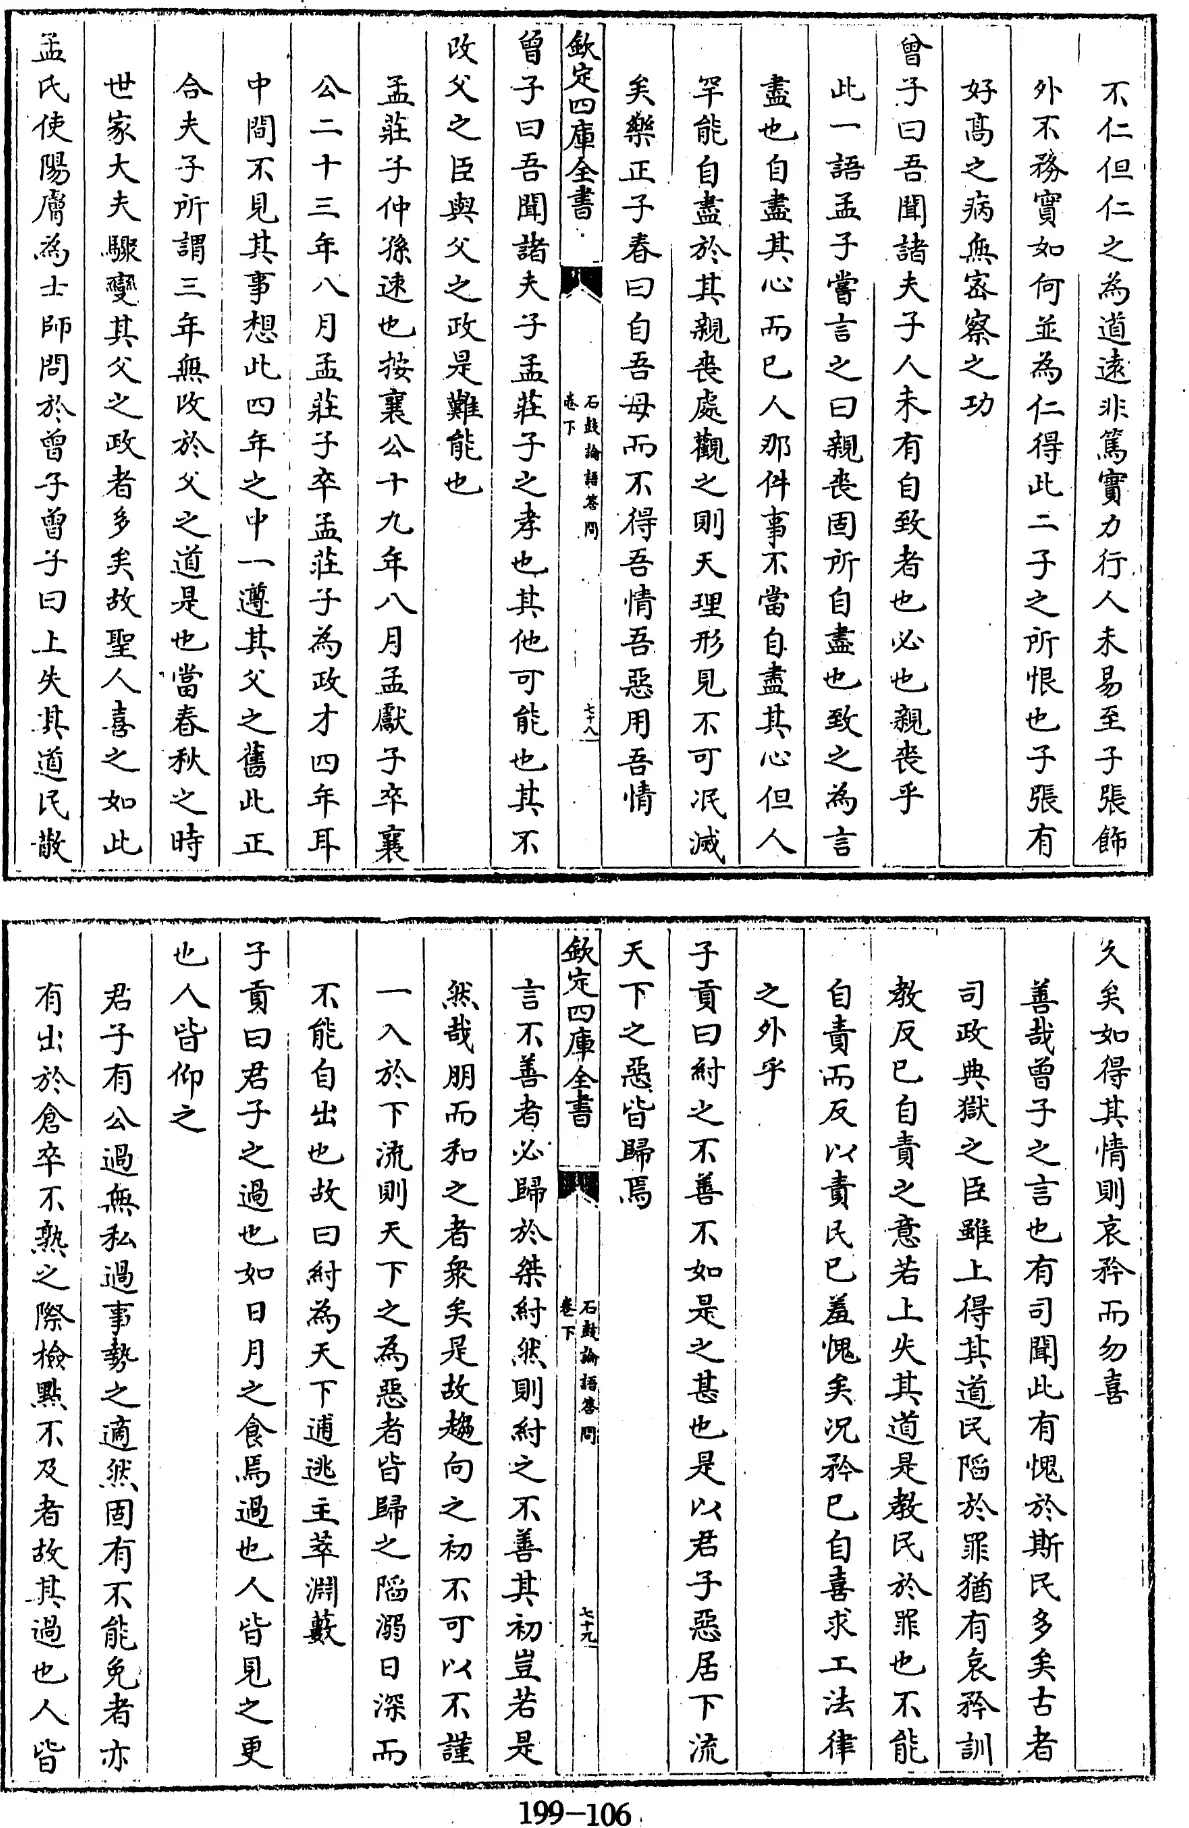 不仁但仁之為道遠非篤實力行人未易至子張飾
外不務實如何並為仁得此二子之所恨也子張有
好髙之病無宻察之功
曾子曰吾聞諸夫子人未有自致者也必也親喪乎
此一語孟子嘗言之曰親喪固所自盡也致之為言
盡也自盡其心而已人那件事不當自盡其心但人
罕能自盡於其親喪處觀之則天理形見不可泯滅
矣樂正子春曰自吾母而不得吾情吾惡用吾情
欽定四庫全書
石鼓論語答問
卷下
七十八
曾子曰吾聞諸夫子孟莊子之孝也其他可能也其不
改父之臣與父之政是難能也
孟莊子仲孫速也按襄公十九年八月孟獻子卒襄
公二十三年八月孟莊子卒孟莊子為政才四年耳
中間不見其事想此四年之中一遵其父之舊此正
合夫子所謂三年無改於父之道是也當春秋之時
世家大夫驟變其父之政者多矣故聖人喜之如此
孟氏使陽膚為士師問於曾子曾子曰上失其道民散
久矣如得其情則哀矜而勿喜
善哉曾子之言也有司聞此有愧於斯民多矣古者
司政典獄之臣雖上得其道民陷於罪猶有哀矜訓
教反已自責之意若上失其道是教民於罪也不能
自責而反以責民已羞愧矣況矜已自喜求工法律
之外乎
子貢曰紂之不善不如是之甚也是以君子惡居下流
天下之惡皆歸焉
欽定四庫全書
石鼓論語答問
卷下
七十九
言不善者必歸於桀紂然則紂之不善其初豈若是
然哉朋而和之者衆矣是故趨向之初不可以不謹
一入於下流則天下之為惡者皆歸之陷溺日深而
不能自出也故曰紂為天下逋逃主萃淵藪
子貢曰君子之過也如日月之食焉過也人皆見之更
也人皆仰之
君子有公過無私過事勢之適然固有不能免者亦
有出於倉卒不熟之際檢點不及者故其過也人皆
199-106